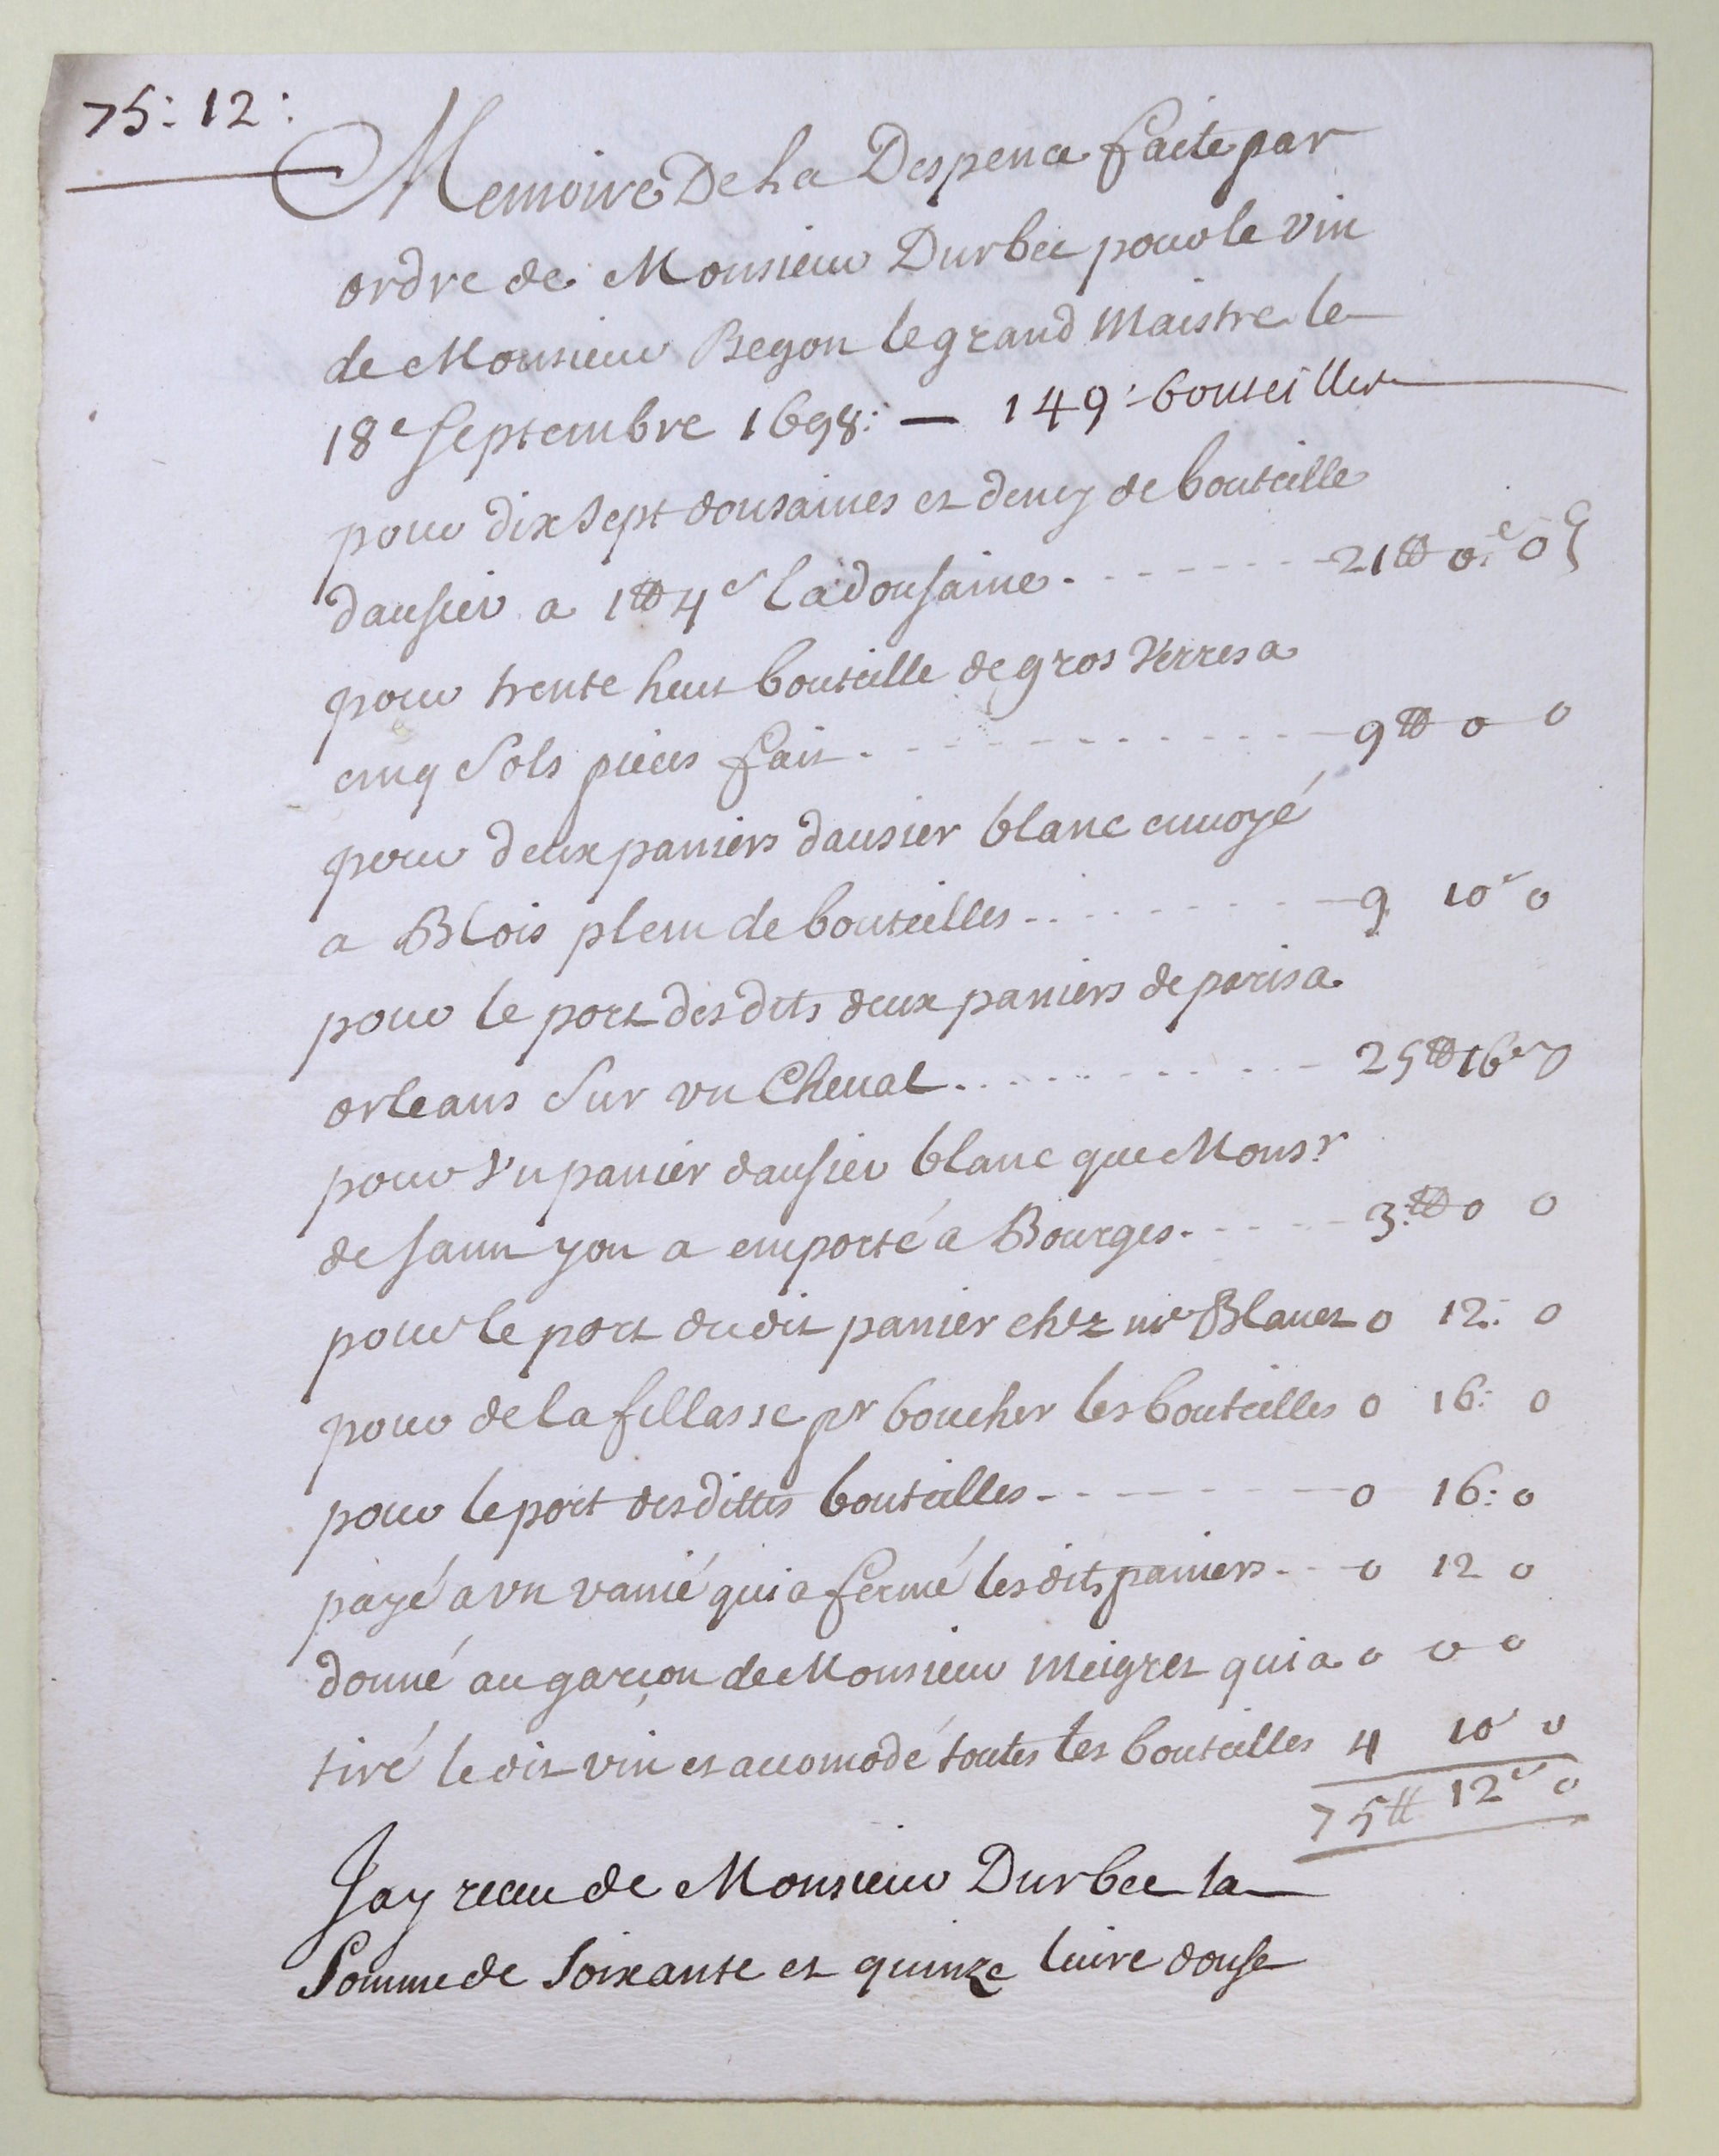 75: 12:
Memoire De La Despence faite par
ordre de Monsieur Durbec pour le vin
de Monsieur Begon le grand Maistre le
18e septembre 1698: — 149: bouteilles
pour dix sept dousaines et demy de bouteille
dausier a 1tt 4s la dousaine - - - - - - - 21tt 0s 0d
pour trente huit bouteille de gros verres a
cinq sols pieces fait - - - - - - - - - - - 9tt 0 0
pour deux paniers dausier blanc envoyé
a Blois plein de bouteilles - - - - - - - - 9 10s 0
pour le port desdits deux paniers de paris a
orleans sur vn Cheval - - - - - - - - - 25tt 16s 0
pour vn panier dausier blanc que Monsr
de saint yon a emporté a Bourges - - - - 3:tt 0 0
pour le port dudit panier chez mr Blanet 0 12: 0
pour de la fillasse pr boucher les bouteilles 0 16: 0
pour le port desdittes bouteilles - - - - - - - 0 16: 0
payé a vn vanié qui a fermé lesdits paniers - - 0 12 0
donné au garçon de Monsieur Meigret qui a 0 0 0
tiré le dit vin et accomodé toutes les bouteilles 4 10s 0
75tt 12s 0
Jay receu de Monsieur Durbec la
somme de soixante et quinze livre douse